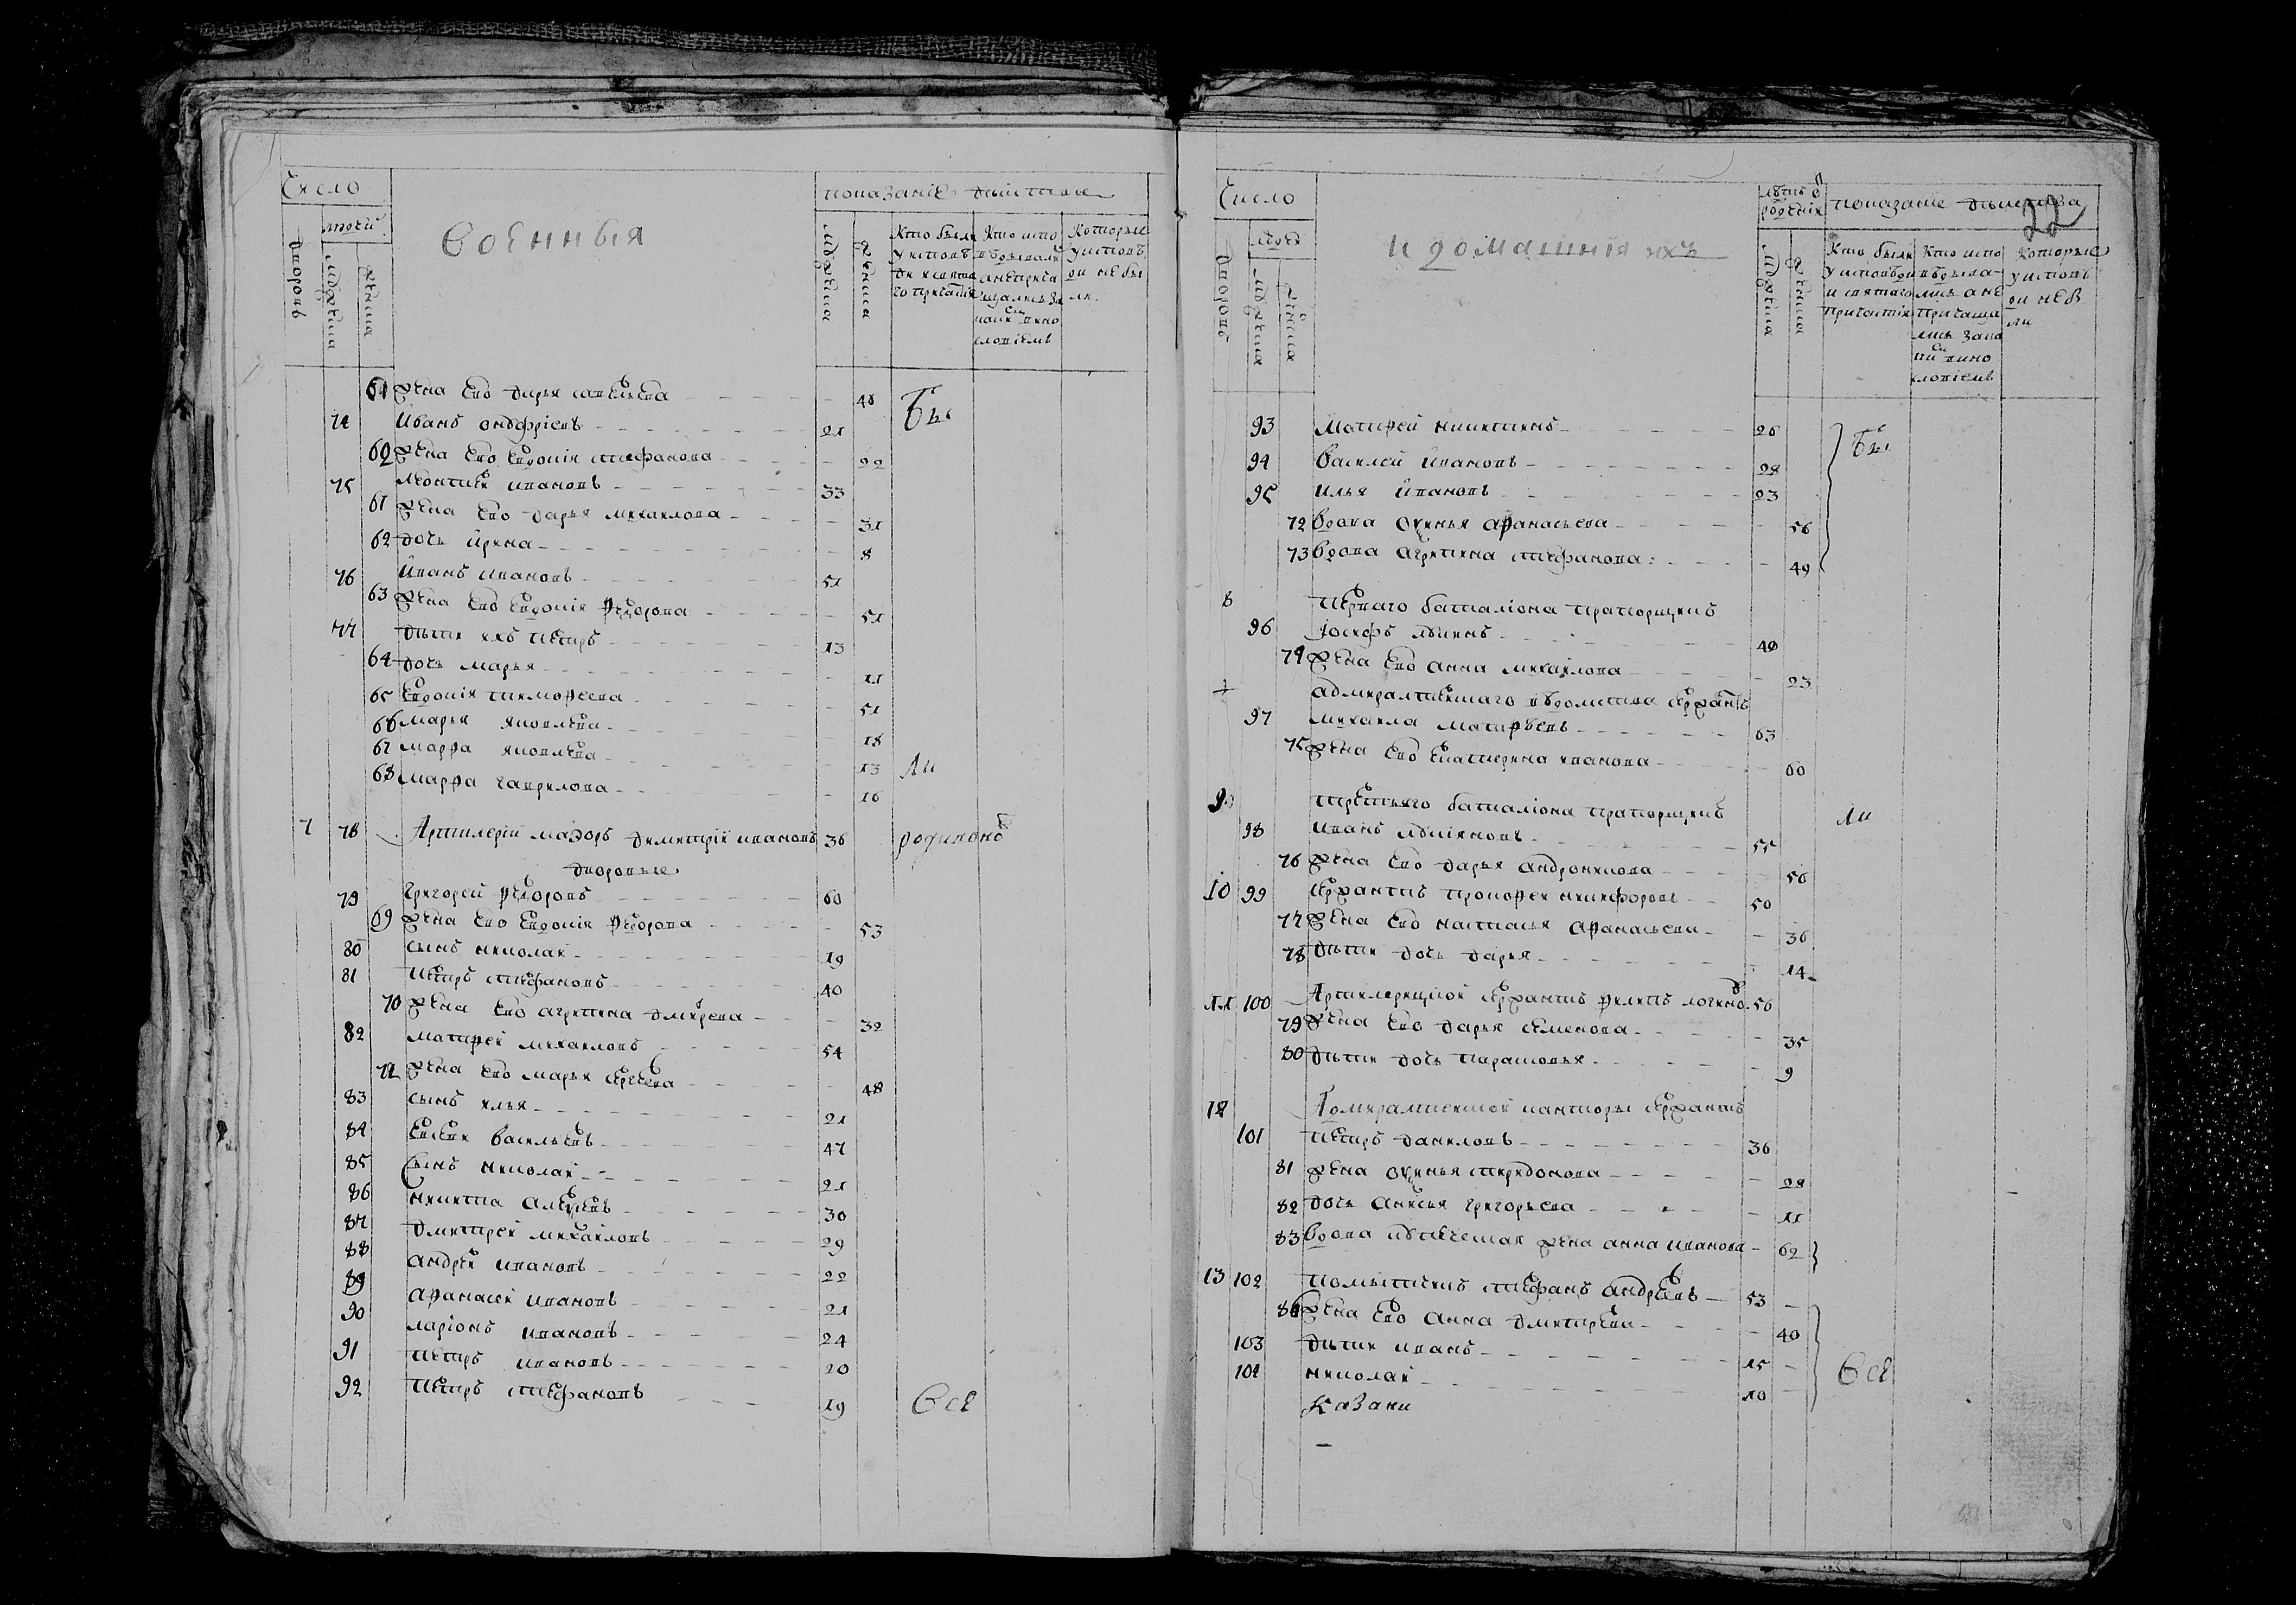 Число
людей
дворовъ
мужеска
женска
военныя
показаніе действа
мужеска
женска
Кто были
у исповѣ
ди и свята
го причастія
Кто испо
ведовали
а не прича
щались за
каким вино
словіемъ
Которые
у исповѣ
ди не бы
ли
61 жена ево дарья савельева 48 Бы
74 Иванъ 21
62 жена ево евдокія стефанова 22
75 леонтий ивановъ 33
61 жена ево дарья михаилова 31
62 дочь ирина 8
76 Иванъ ивановъ 51
63 жена ево евдокія федорова 51
77 дети ихъ петръ 13
64 дочь марья 11
65 евдокія тимофеева 51
66 марья яковлева 18
67 марфа яковлева 13 ли
68 марфа гаврилова 16
7 78 Артилеріи маэоръ димитрій ивановъ 36
дворовые
79 Григорей федоровъ 60
69 жена ево евдокія федорова 53
80 сынъ николай 19
81 петръ стефановъ 40
70 жена ево агрипина дмитрева 32
82 матфей михаиловъ 54
72 жена ево марья сергеева 48
83 сынъ илья 21
84 евсей васильевъ 47
85 сынъ николай 21
86 никита алексеевъ 30
87 дмитрей михаиловъ 29
88 андрей ивановъ 22
89 афанасей ивановъ 21
90 ларіонъ ивановъ 24
91 петръ ивановъ 20
92 петръ стефановъ 19 все
22
Число
людей
дворовъ
мужеска
женска
и домашнія ихъ
лѣтъ о
рожденія
показаніе действа
мужеска
женска
Кто были
у исповѣди
и святаго
причастія
Кто испо
ведова
лись а не
причаща
лись зака
ким вино
словіемъ
Которые
у исповѣ
ди не бы
ли
93 Матфей никитинъ 26 Бы
94 Василей ивановъ 28
95 илья ивановъ 23
72 вдова аксинья афанасьева 56
73 вдова агрипина стефанова 49
8 перваго баталіона прапорщикъ
96 іосифъ 40
74 жена ево анна михаилова 23
адмиралтейскаго ведомства сержантъ
97 михаила матфѣевъ 63
75 жена ево екатерина иванова 60
9 третьяго баталіона прапорщикъ ли
98 иванъ 55
76 жена ево дарья андроникова 56
10 99 сержантъ прокофей никифоровъ 50
77 жена ево настасья афанасьева 36
78 дѣти дочь дарья 14
11 100 Артилерицкой сержантъ филипъ логиновъ 56
79 жена ево дарья семенова 35
80 дѣти дочь парасковья 9
12 Адмиралтейской канторы сержантъ
101 петръ даниловъ 36
81 жена аксинья спиридонова 28
82 дочь анисья григорьева 11
83 вдова жена анна иванова 62
13 102 стефанъ андреевъ 53
84 жена ево анна дмитрева 40
103 дѣти иванъ 15
104 николай 10 все
Казани